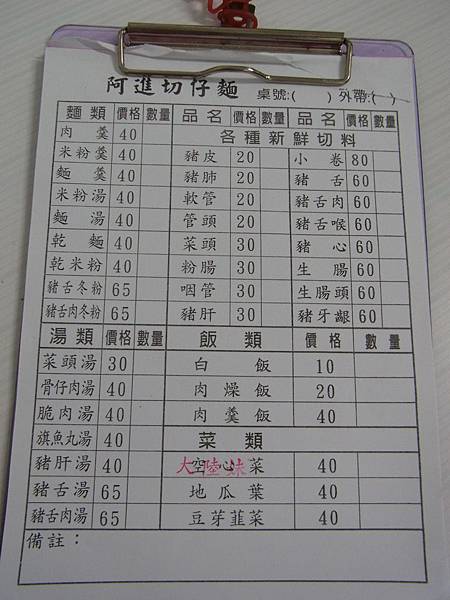 阿進切仔麵 桌號:( ) 外帶:( )
麵類 價格 數量 品名 價格 數量 品名 價格 數量
各種新鮮切料
肉羹 40
米粉羹 40 豬皮 20 小卷 80
麵羹 40 豬肺 20 豬舌 60
米粉湯 40 軟管 20 豬舌肉 60
麵湯 40 管頭 20 豬舌喉 60
乾麵 40 菜頭 30 豬心 60
乾米粉 40 粉腸 30 生腸 60
豬舌冬粉 65 咽管 30 生腸頭 60
豬舌肉冬粉 65 豬肝 30 豬牙齦 60
湯類 價格 數量 飯類 價格 數量
菜頭湯 30 白飯 10
骨仔肉湯 40 肉燥飯 20
脆肉湯 40 肉羹飯 40
旗魚丸湯 40 菜類
豬肝湯 40 空心菜 40
大陸妹
豬舌湯 65 地瓜葉 40
豬舌肉湯 65 豆芽韮菜 40
備註：